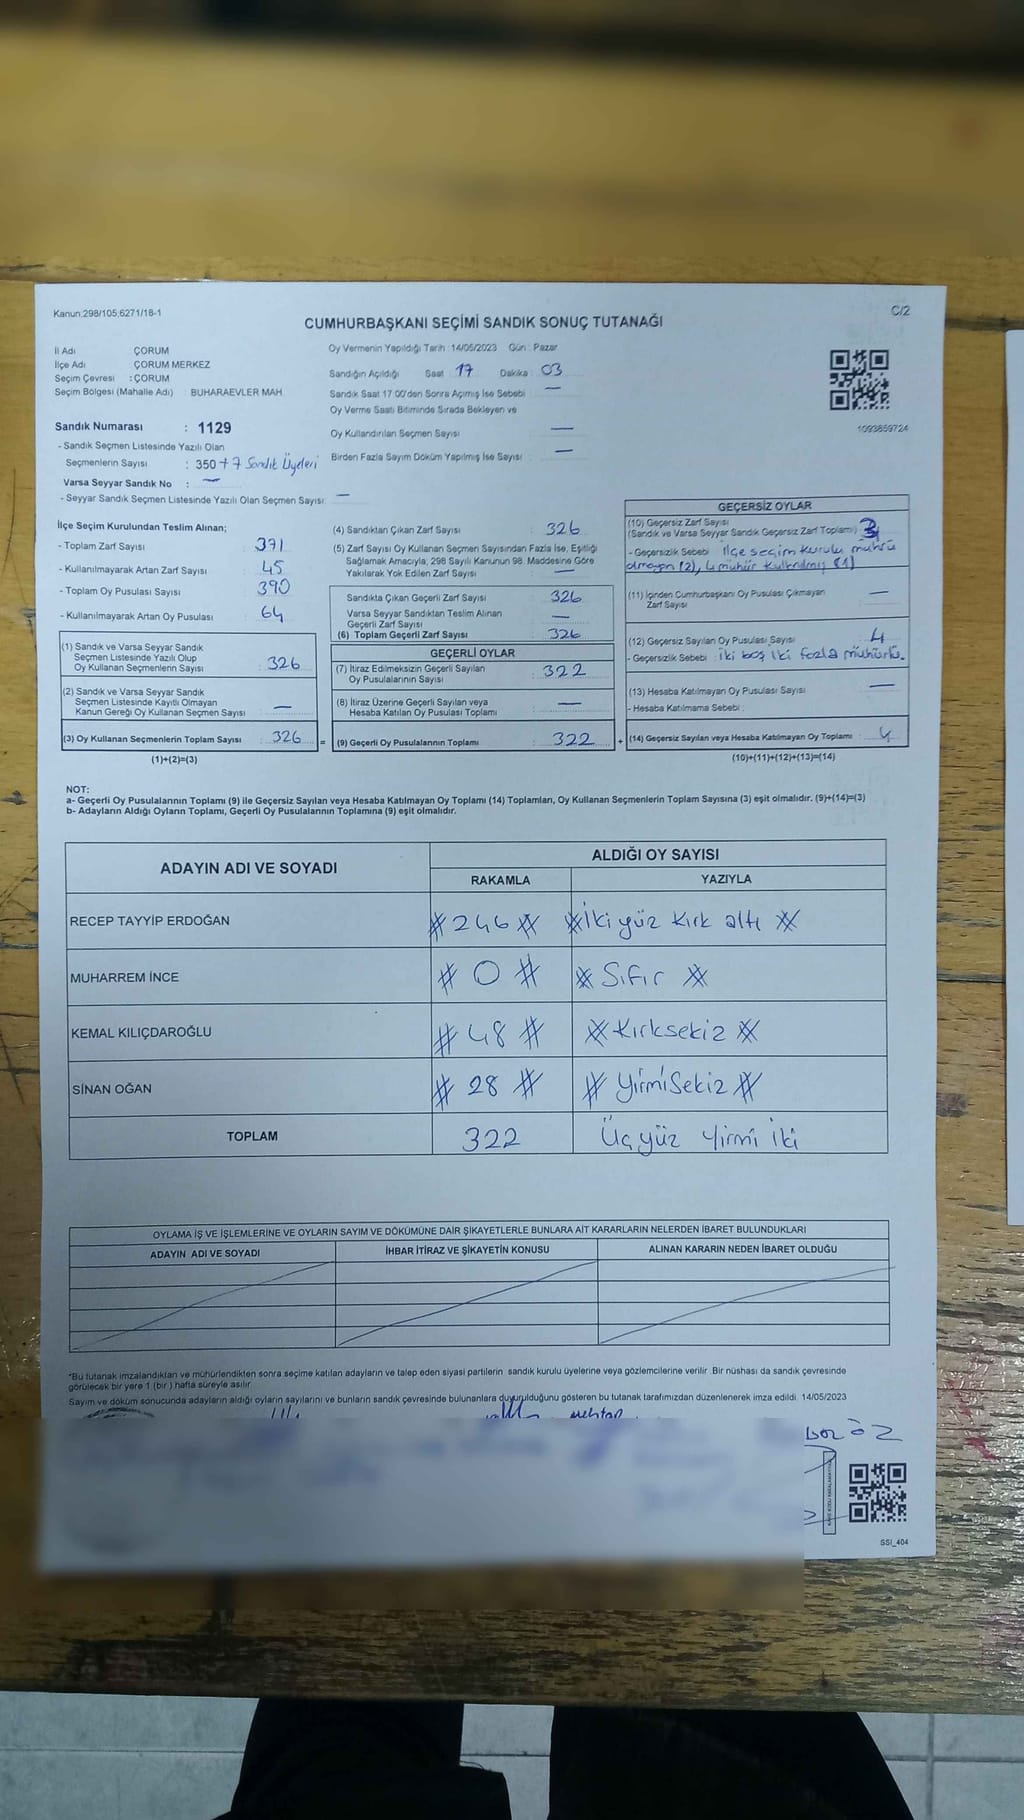 Kanun:298/105;6271/18-1
C/2
CUMHURBAŞKANI SEÇİMİ SANDIK SONUÇ TUTANAĞI
İl Adı ÇORUM
İlçe Adı ÇORUM MERKEZ
Seçim Çevresi : ÇORUM
Seçim Bölgesi (Mahalle Adı) BUHARAEVLER MAH.
Sandık Numarası : 1129
- Sandık Seçmen Listesinde Yazılı Olan
Seçmenlerin Sayısı : 350 + 7 Sandık Üyeleri
Varsa Seyyar Sandık No : —
- Seyyar Sandık Seçmen Listesinde Yazılı Olan Seçmen Sayısı: —
Oy Vermenin Yapıldığı Tarih : 14/05/2023 Gün : Pazar
Sandığın Açıldığı Saat 17 Dakika 03
Sandık Saat 17.00'den Sonra Açımış İse Sebebi —
Oy Verme Saati Bitiminde Sırada Bekleyen ve
Oy Kullandırılan Seçmen Sayısı —
Birden Fazla Sayım Döküm Yapılmış İse Sayısı : —
1093859724
İlçe Seçim Kurulundan Teslim Alınan;
- Toplam Zarf Sayısı 371
- Kullanılmayarak Artan Zarf Sayısı : 45
- Toplam Oy Pusulası Sayısı : 390
- Kullanılmayarak Artan Oy Pusulası : 64
(1) Sandık ve Varsa Seyyar Sandık
Seçmen Listesinde Yazılı Olup
Oy Kullanan Seçmenlerin Sayısı : 326
(2) Sandık ve Varsa Seyyar Sandık
Seçmen Listesinde Kayıtlı Olmayan
Kanun Gereği Oy Kullanan Seçmen Sayısı : —
(3) Oy Kullanan Seçmenlerin Toplam Sayısı : 326
(1)+(2)=(3)
(4) Sandıktan Çıkan Zarf Sayısı : 326
(5) Zarf Sayısı Oy Kullanan Seçmen Sayısından Fazla İse, Eşitliği
Sağlamak Amacıyla; 298 Sayılı Kanunun 98. Maddesine Göre
Yakılarak Yok Edilen Zarf Sayısı : —
Sandıkta Çıkan Geçerli Zarf Sayısı : 326
Varsa Seyyar Sandıktan Teslim Alınan
Geçerli Zarf Sayısı : —
(6) Toplam Geçerli Zarf Sayısı : 326
GEÇERLİ OYLAR
(7) İtiraz Edilmeksizin Geçerli Sayılan
Oy Pusulalarının Sayısı : 322
(8) İtiraz Üzerine Geçerli Sayılan veya
Hesaba Katılan Oy Pusulası Toplamı : —
=
(9) Geçerli Oy Pusulalarının Toplamı : 322
+
GEÇERSİZ OYLAR
(10) Geçersiz Zarf Sayısı
(Sandık ve Varsa Seyyar Sandık Geçersiz Zarf Toplamı) : 3
- Geçersizlik Sebebi : İlçe seçim kurulu mührü
olmayan (2), 4 mühür kullanılmış (1)
(11) İçinden Cumhurbaşkanı Oy Pusulası Çıkmayan
Zarf Sayısı : —
(12) Geçersiz Sayılan Oy Pusulası Sayısı : 4
- Geçersizlik Sebebi : İki boş iki fazla mühürlü.
(13) Hesaba Katılmayan Oy Pusulası Sayısı : —
- Hesaba Katılmama Sebebi :
(14) Geçersiz Sayılan veya Hesaba Katılmayan Oy Toplamı : 4
(10)+(11)+(12)+(13)=(14)
NOT:
a- Geçerli Oy Pusulalarının Toplamı (9) ile Geçersiz Sayılan veya Hesaba Katılmayan Oy Toplamı (14) Toplamları, Oy Kullanan Seçmenlerin Toplam Sayısına (3) eşit olmalıdır. (9)+(14)=(3)
b- Adayların Aldığı Oyların Toplamı, Geçerli Oy Pusulalarının Toplamına (9) eşit olmalıdır.
ADAYIN ADI VE SOYADI
ALDIĞI OY SAYISI
RAKAMLA YAZIYLA
RECEP TAYYİP ERDOĞAN # 246 # # İki yüz kırk altı #
MUHARREM İNCE # 0 # # Sıfır #
KEMAL KILIÇDAROĞLU # 48 # # Kırksekiz #
SİNAN OĞAN # 28 # # YirmiSekiz #
TOPLAM 322 Üç yüz Yirmi İki
OYLAMA İŞ VE İŞLEMLERİNE VE OYLARIN SAYIM VE DÖKÜMÜNE DAİR ŞİKAYETLERLE BUNLARA AİT KARARLARIN NELERDEN İBARET BULUNDUKLARI
ADAYIN ADI VE SOYADI İHBAR İTİRAZ VE ŞİKAYETİN KONUSU ALINAN KARARIN NEDEN İBARET OLDUĞU
*Bu tutanak imzalandıktan ve mühürlendikten sonra seçime katılan adayların ve talep eden siyasi partilerin sandık kurulu üyelerine veya gözlemcilerine verilir. Bir nüshası da sandık çevresinde
görülecek bir yere 1 (bir ) hafta süreyle asılır.
Sayım ve döküm sonucunda adayların aldığı oyların sayılarını ve bunların sandık çevresinde bulunanlara duyurulduğunu gösteren bu tutanak tarafımızdan düzenlenerek imza edildi. 14/05/2023
SSI_404